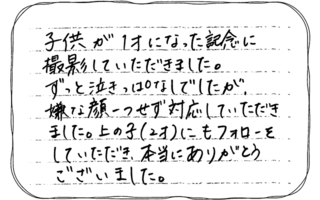 子供が1才になった記念に
撮影していただきました。
ずっと泣きっぱなしでしたが、
嫌な顔一つせず対応していただき
ました。上の子(2才)にもフォローを
していただき、本当にありがとう
ございました。